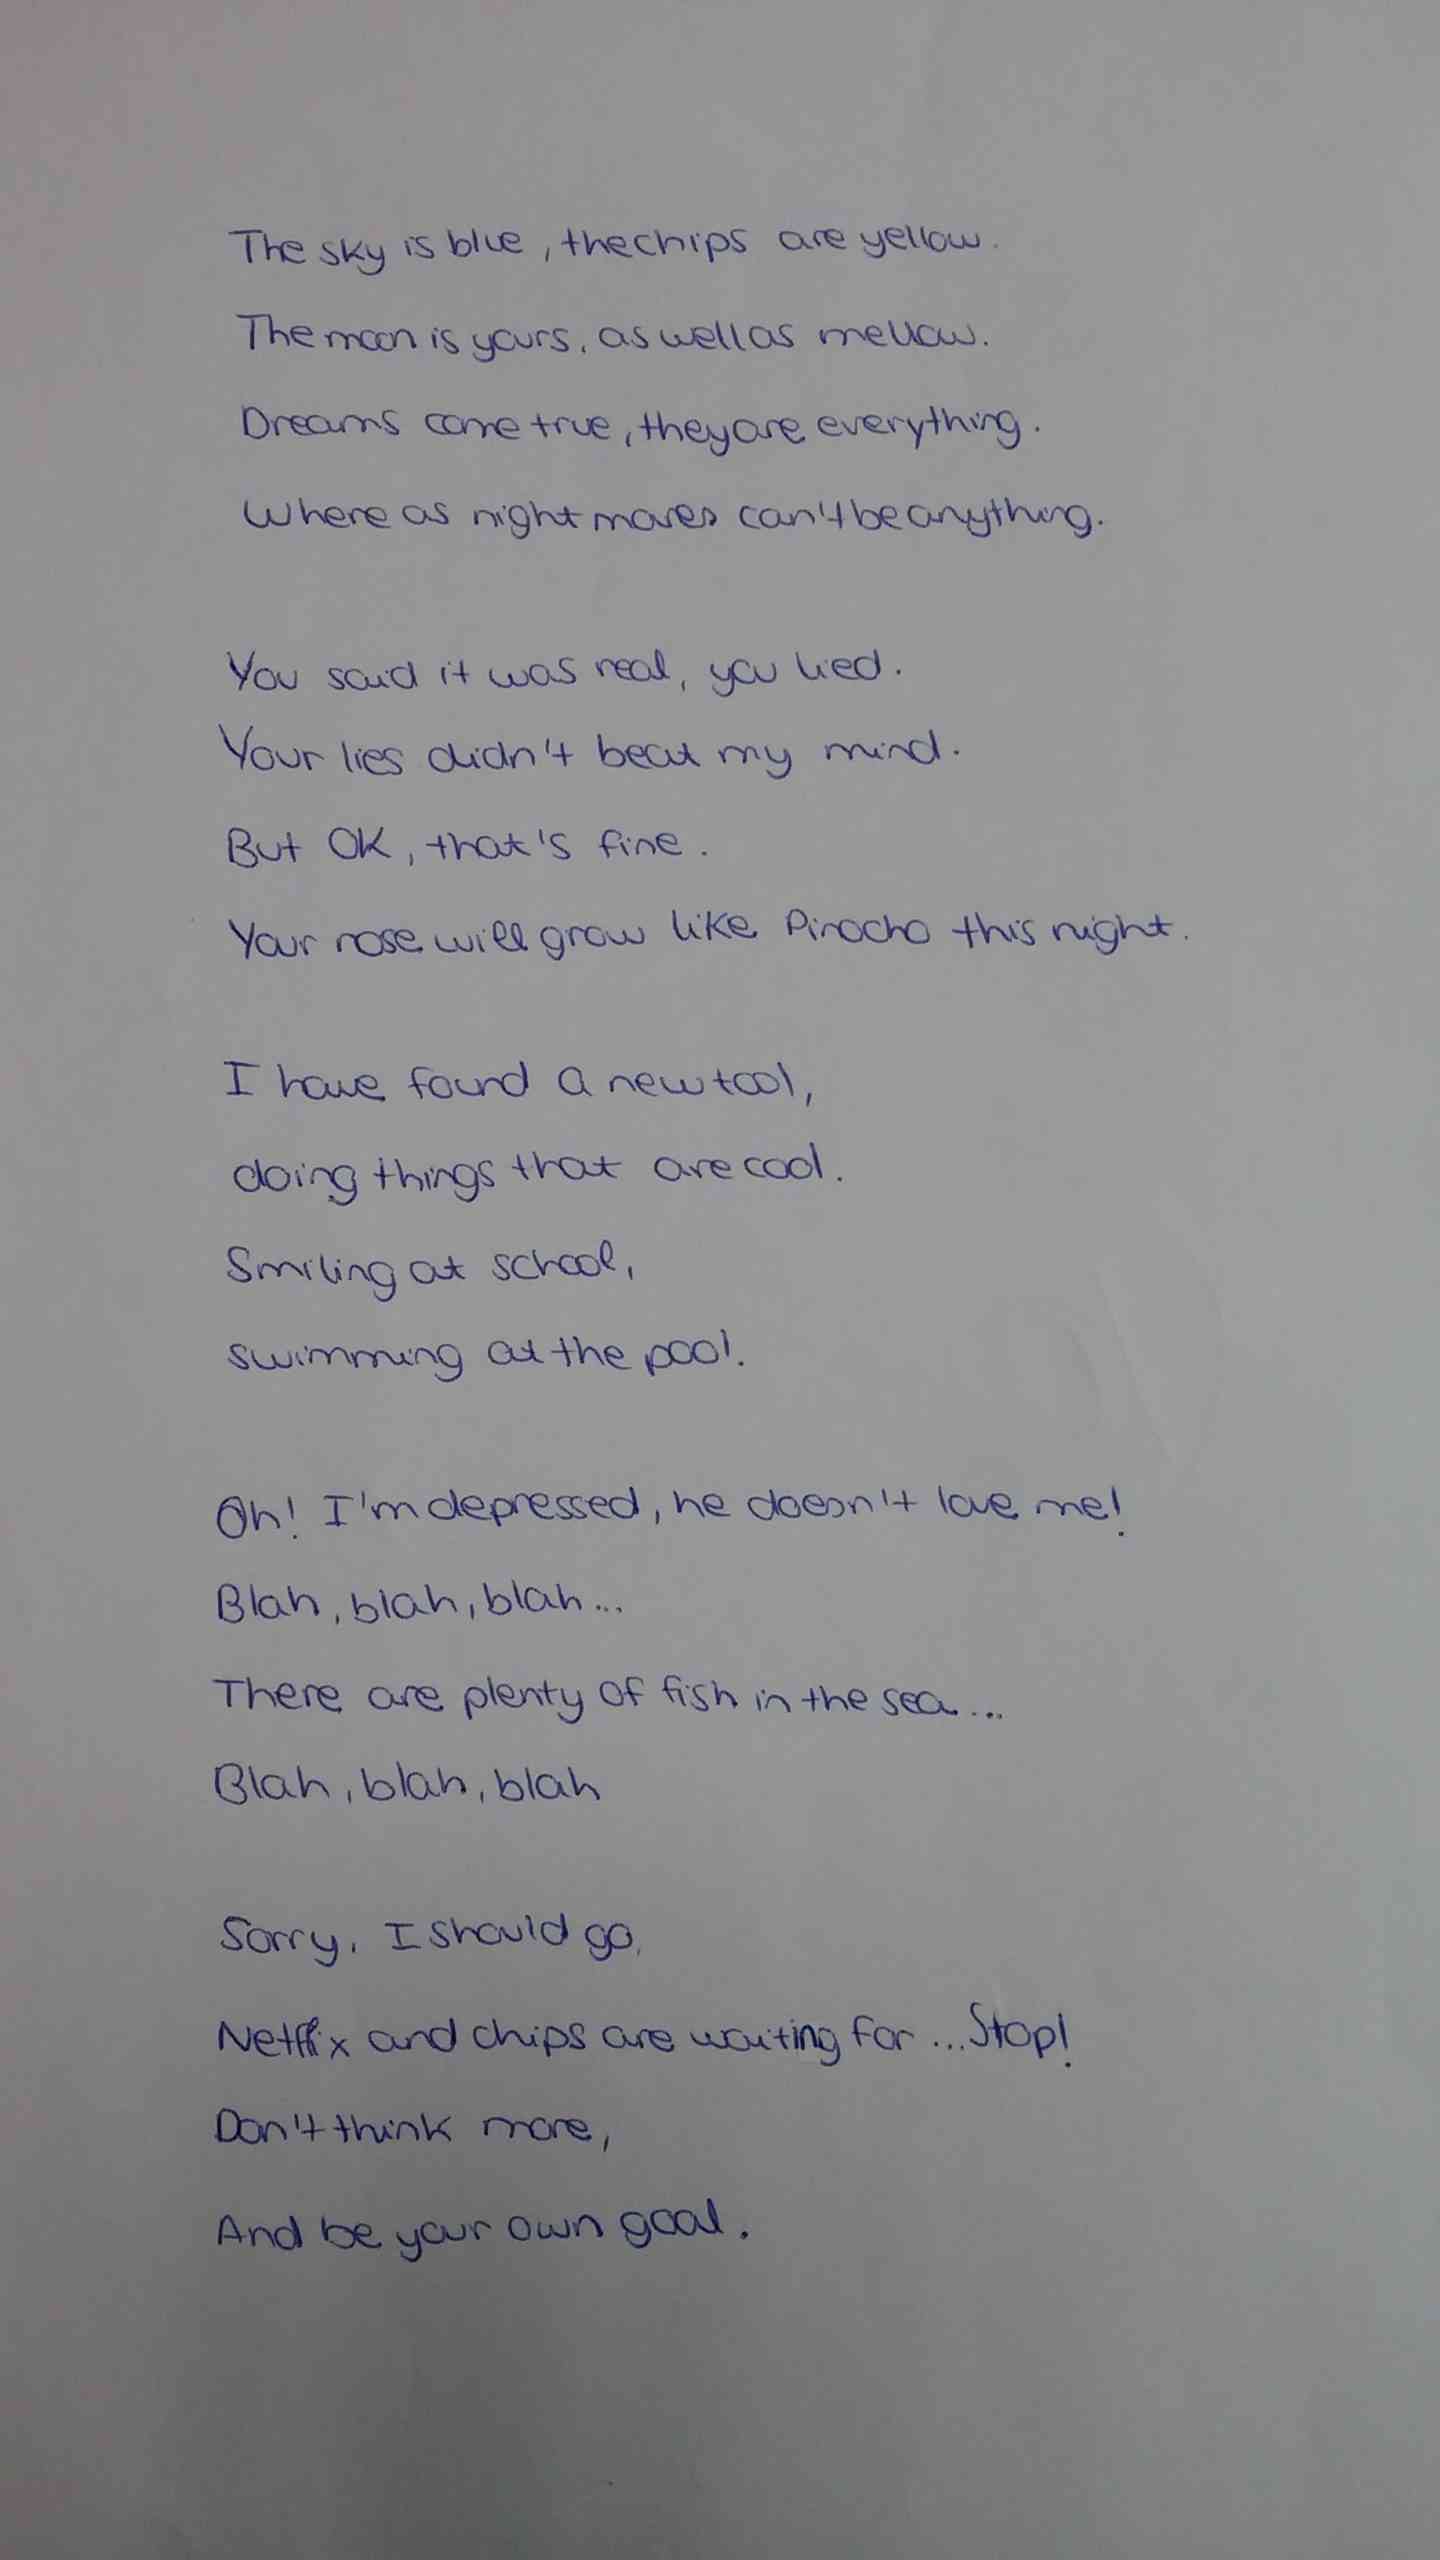 The sky is blue, the chips are yellow.
The moon is yours, as well as mellow.
Dreams come true, they are everything.
Where as nightmares can't be anything.
You said it was real, you lied.
Your lies didn't beat my mind.
But OK, that's fine.
Your nose will grow like Pinocho this night.
I have found a new tool,
doing things that are cool.
Smiling at school,
swimming at the pool.
Oh! I'm depressed, he doesn't love me!
Blah, blah, blah...
There are plenty of fish in the sea...
Blah, blah, blah
Sorry, I should go,
Netflix and chips are waiting for ... Stop!
Don't think more,
And be your own goal.